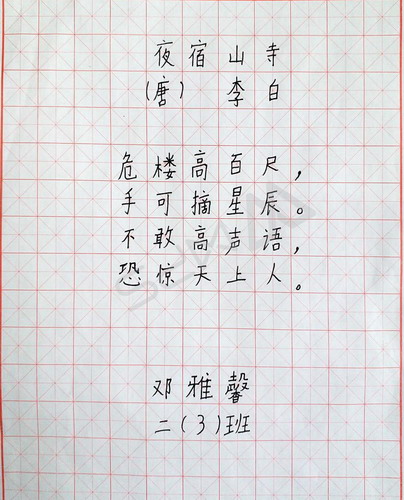 夜宿山寺
(唐) 李白
危楼高百尺，
手可摘星辰。
不敢高声语，
恐惊天上人。
邓雅馨
二(3)班